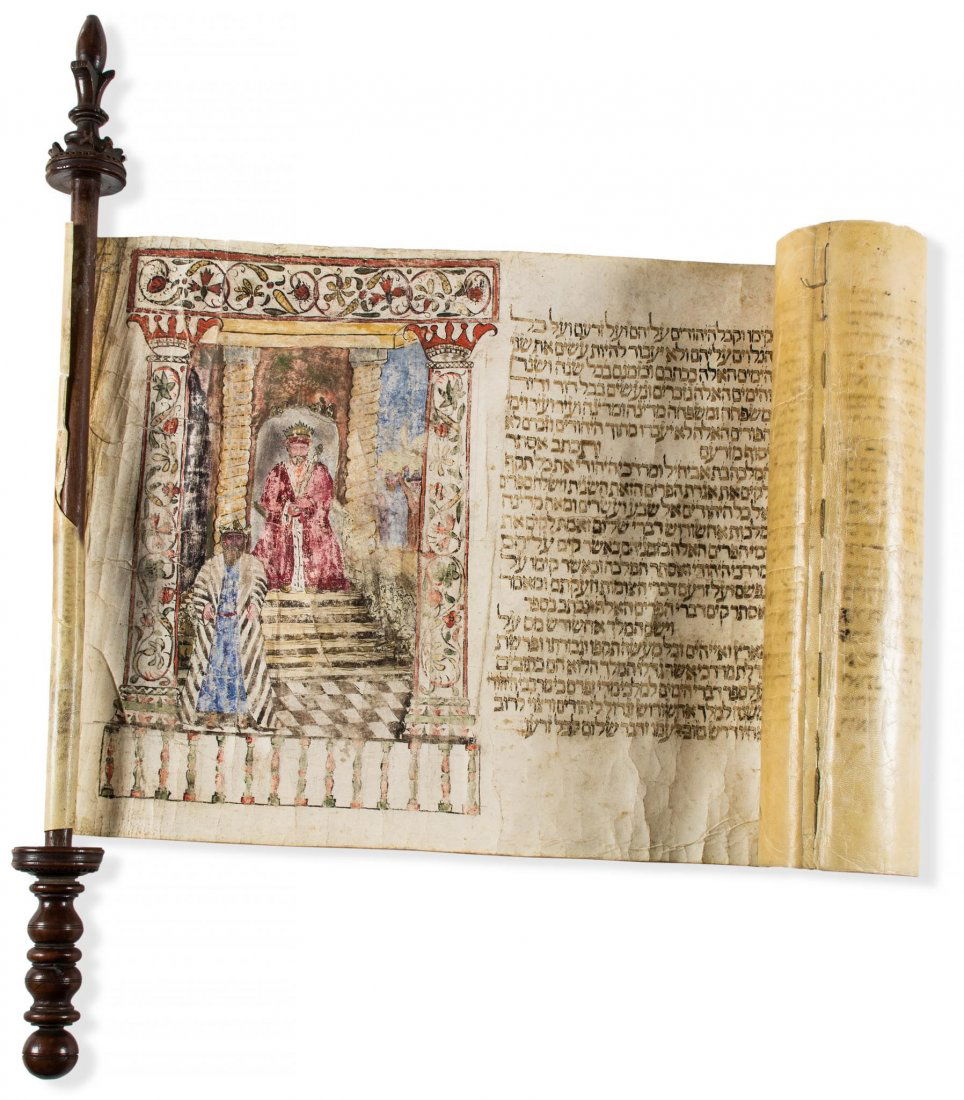 קימו וקבל היהודים עליהם ועל זרעם ועל כל
הנלוים עליהם ולא יעבור להיות עשים את שני
הימים האלה ככתבם וכזמנם בכל שנה ושנה
והימים האלה נזכרים ונעשים בכל דור ודור
משפחה ומשפחה מדינה ומדינה ועיר ועיר וימי
הפורים האלה לא יעברו מתוך היהודים וזכרם לא
יסוף מזרעם ותכתב אסתר
המלכה בת אביחיל ומרדכי היהודי את כל תקף
לקים את אגרת הפרים הזאת השנית וישלח ספרים
אל כל היהודים אל שבע ועשרים ומאה מדינה
מלכות אחשורוש דברי שלום ואמת לקים את
ימי הפרים האלה בזמניהם כאשר קים עליהם
מרדכי היהודי ואסתר המלכה וכאשר קימו על
נפשם ועל זרעם דברי הצמות וזעקתם ומאמר
אסתר קים דברי הפרים האלה ונכתב בספר
וישם המלך אחשורש מס על
הארץ ואיי הים וכל מעשה תקפו וגבורתו ופרשת
גדלת מרדכי אשר גדלו המלך הלוא הם כתובים
על ספר דברי הימים למלכי מדי ופרס כי מרדכי היהודי
משנה למלך אחשורוש וגדול ליהודים ורצוי לרוב
אחיו דרש טוב לעמו ודבר שלום לכל זרעו